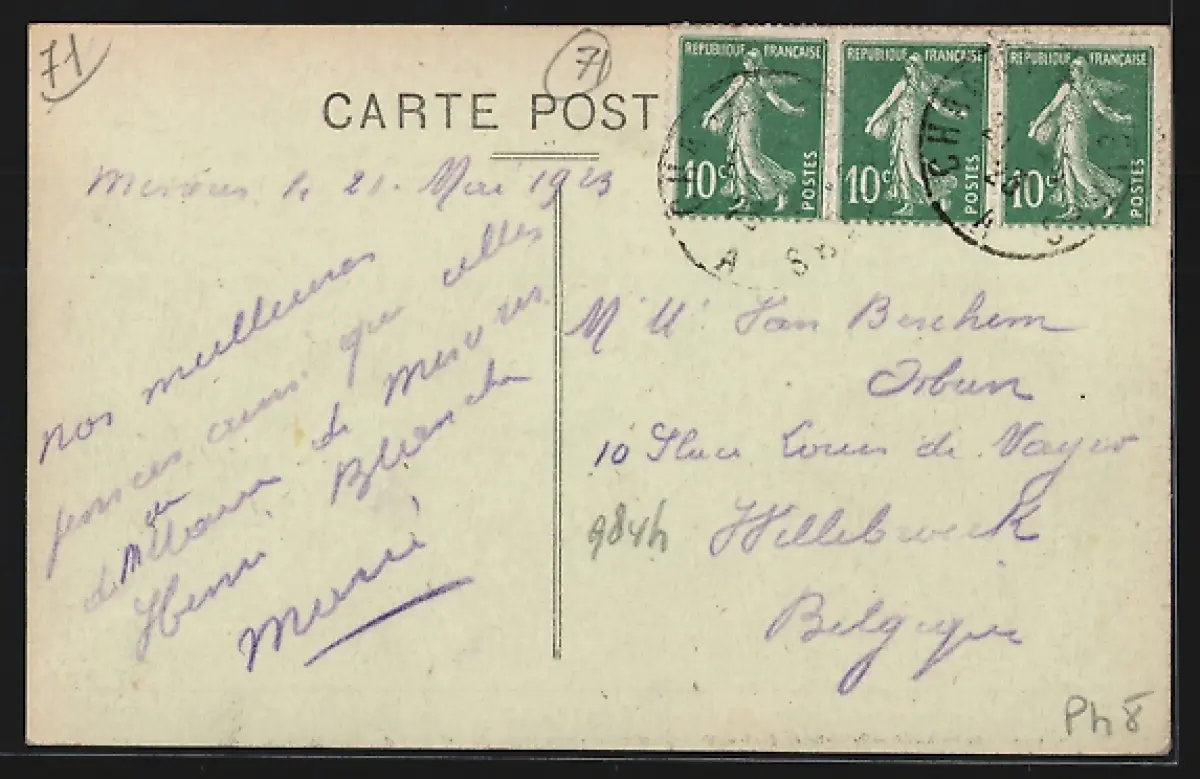 71
71
CARTE POST
REPUBLIQUE FRANÇAISE
10c POSTES
REPUBLIQUE FRANÇAISE
10c POSTES
REPUBLIQUE FRANÇAISE
10c POSTES
Mesvres le 21. Mai 1923
nos meilleures
pensées ainsi que celles
de Mesvres
Henri Blanche
Marie
Van Berchem
10 Place Louis de Nayer
984h
Willebroeck
Belgique
Ph 8